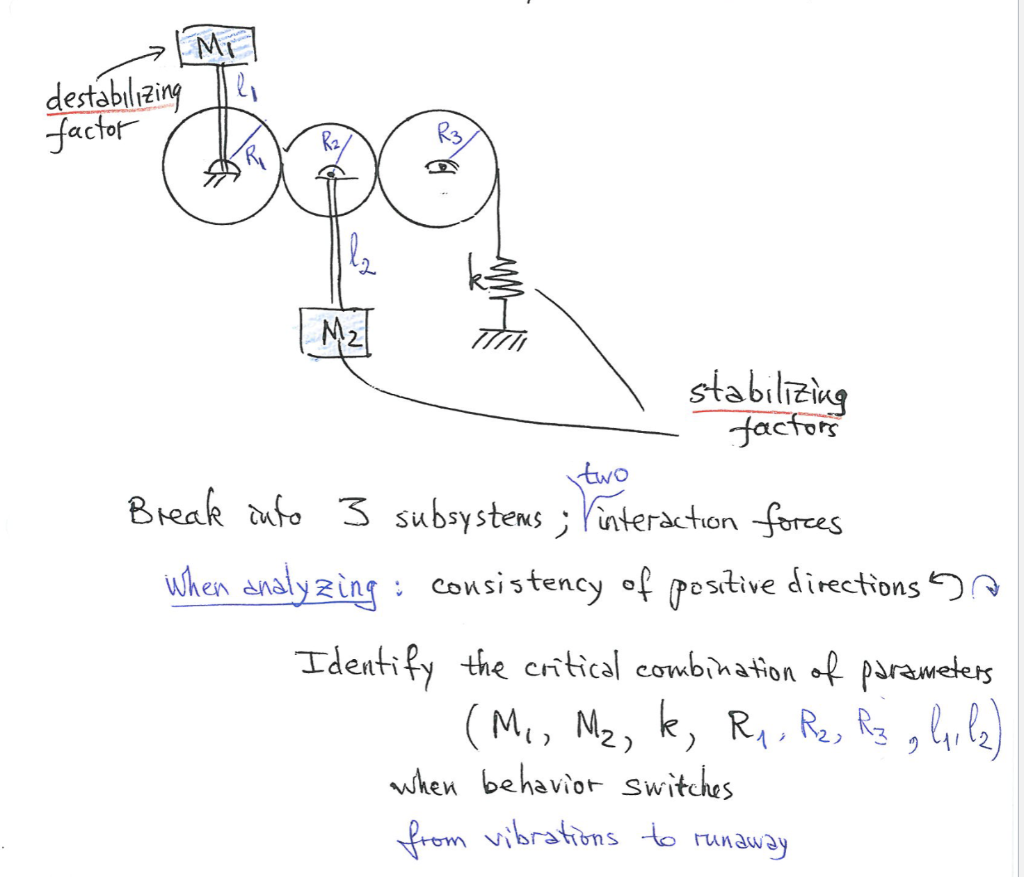 M₁
destabilizing
factor
l₁
R₁
R₂
R₃
l₂
k
M₂
stabilizing
factors
Break into 3 subsystems ; two interaction forces
When analyzing : consistency of positive directions ↶ ↷
Identify the critical combination of parameters
(M₁, M₂, k, R₁, R₂, R₃, l₁, l₂)
when behavior switches
from vibrations to runaway